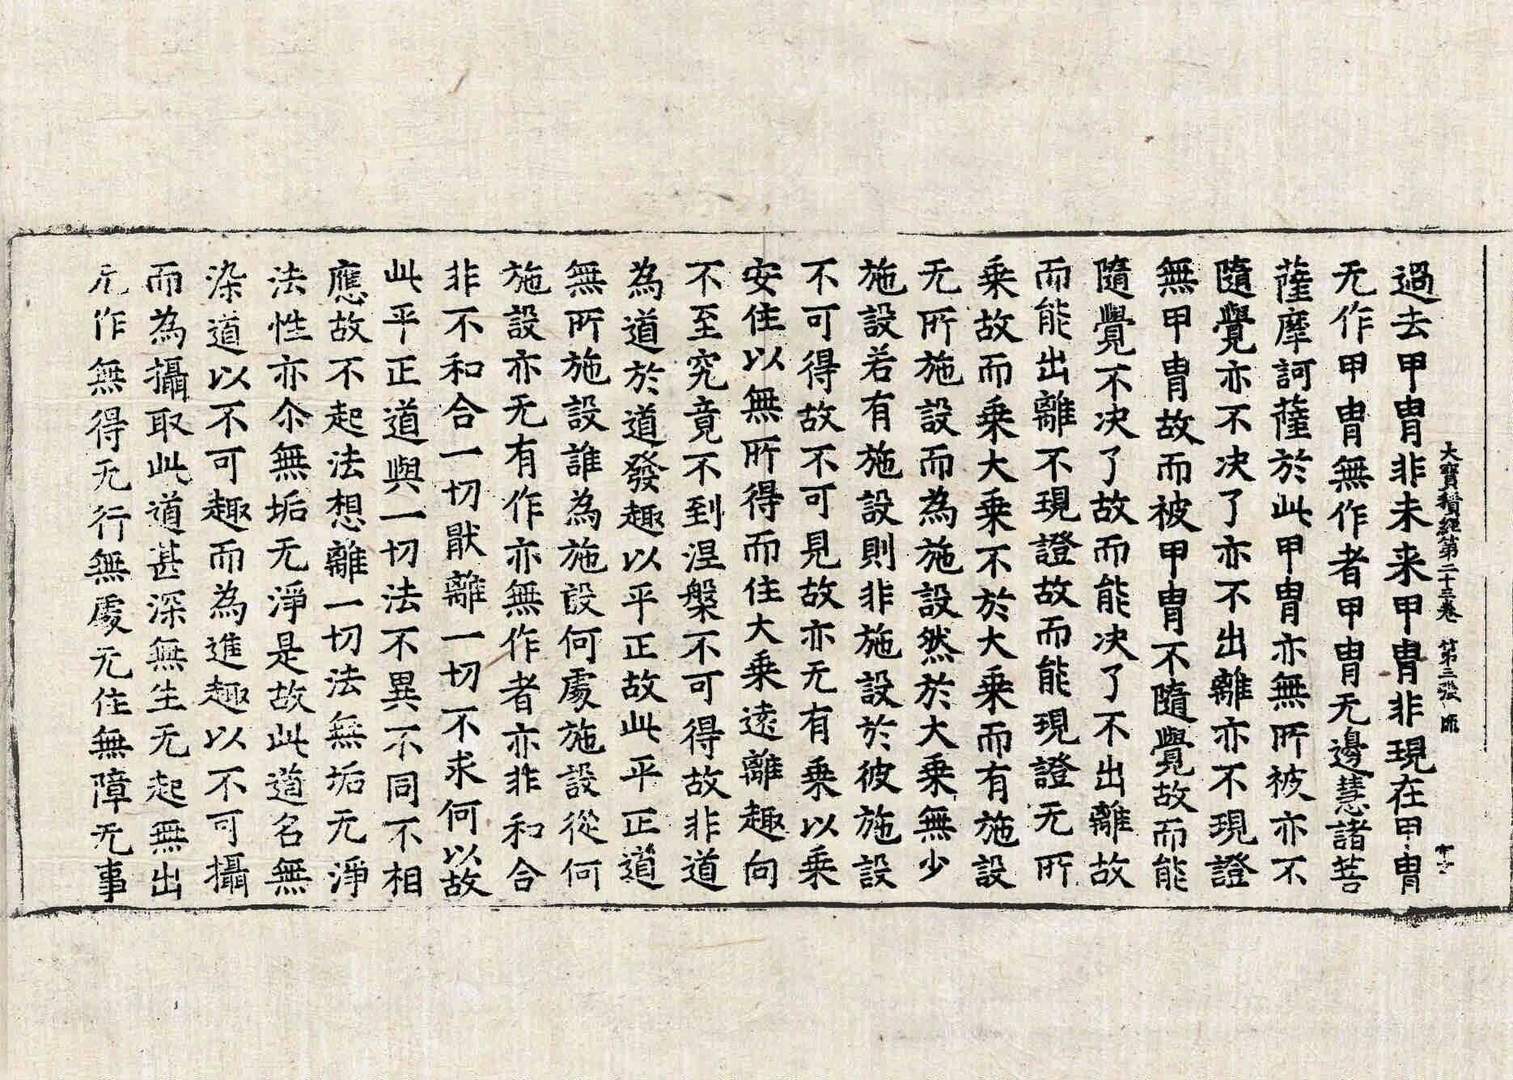 大寶積經第二十三卷 第三張 師
過去甲冑非未来甲冑非現在甲冑
无作甲冑無作者甲冑无邊慧諸菩
薩摩訶薩於此甲冑亦無所被亦不
隨覺亦不决了亦不出離亦不現證
無甲冑故而被甲冑不隨覺故而能
隨覺不决了故而能决了不出離故
而能出離不現證故而能現證无所
乗故而乗大乗不於大乗而有施設
无所施設而為施設然於大乗無少
施設若有施設則非施設於彼施設
不可得故不可見故亦无有乗以乗
安住以無所得而住大乗遠離趣向
不至究竟不到涅槃不可得故非道
為道於道發趣以平正故此平正道
無所施設誰為施設何處施設從何
施設亦无有作亦無作者亦非和合
非不和合一切猒離一切不求何以故
此平正道與一切法不異不同不相
應故不起法想離一切法無垢无淨
法性亦尒無垢无淨是故此道名無
染道以不可趣而為進趣以不可攝
而為攝取此道甚深無生无起無出
无作無得无行無處无住無障无事